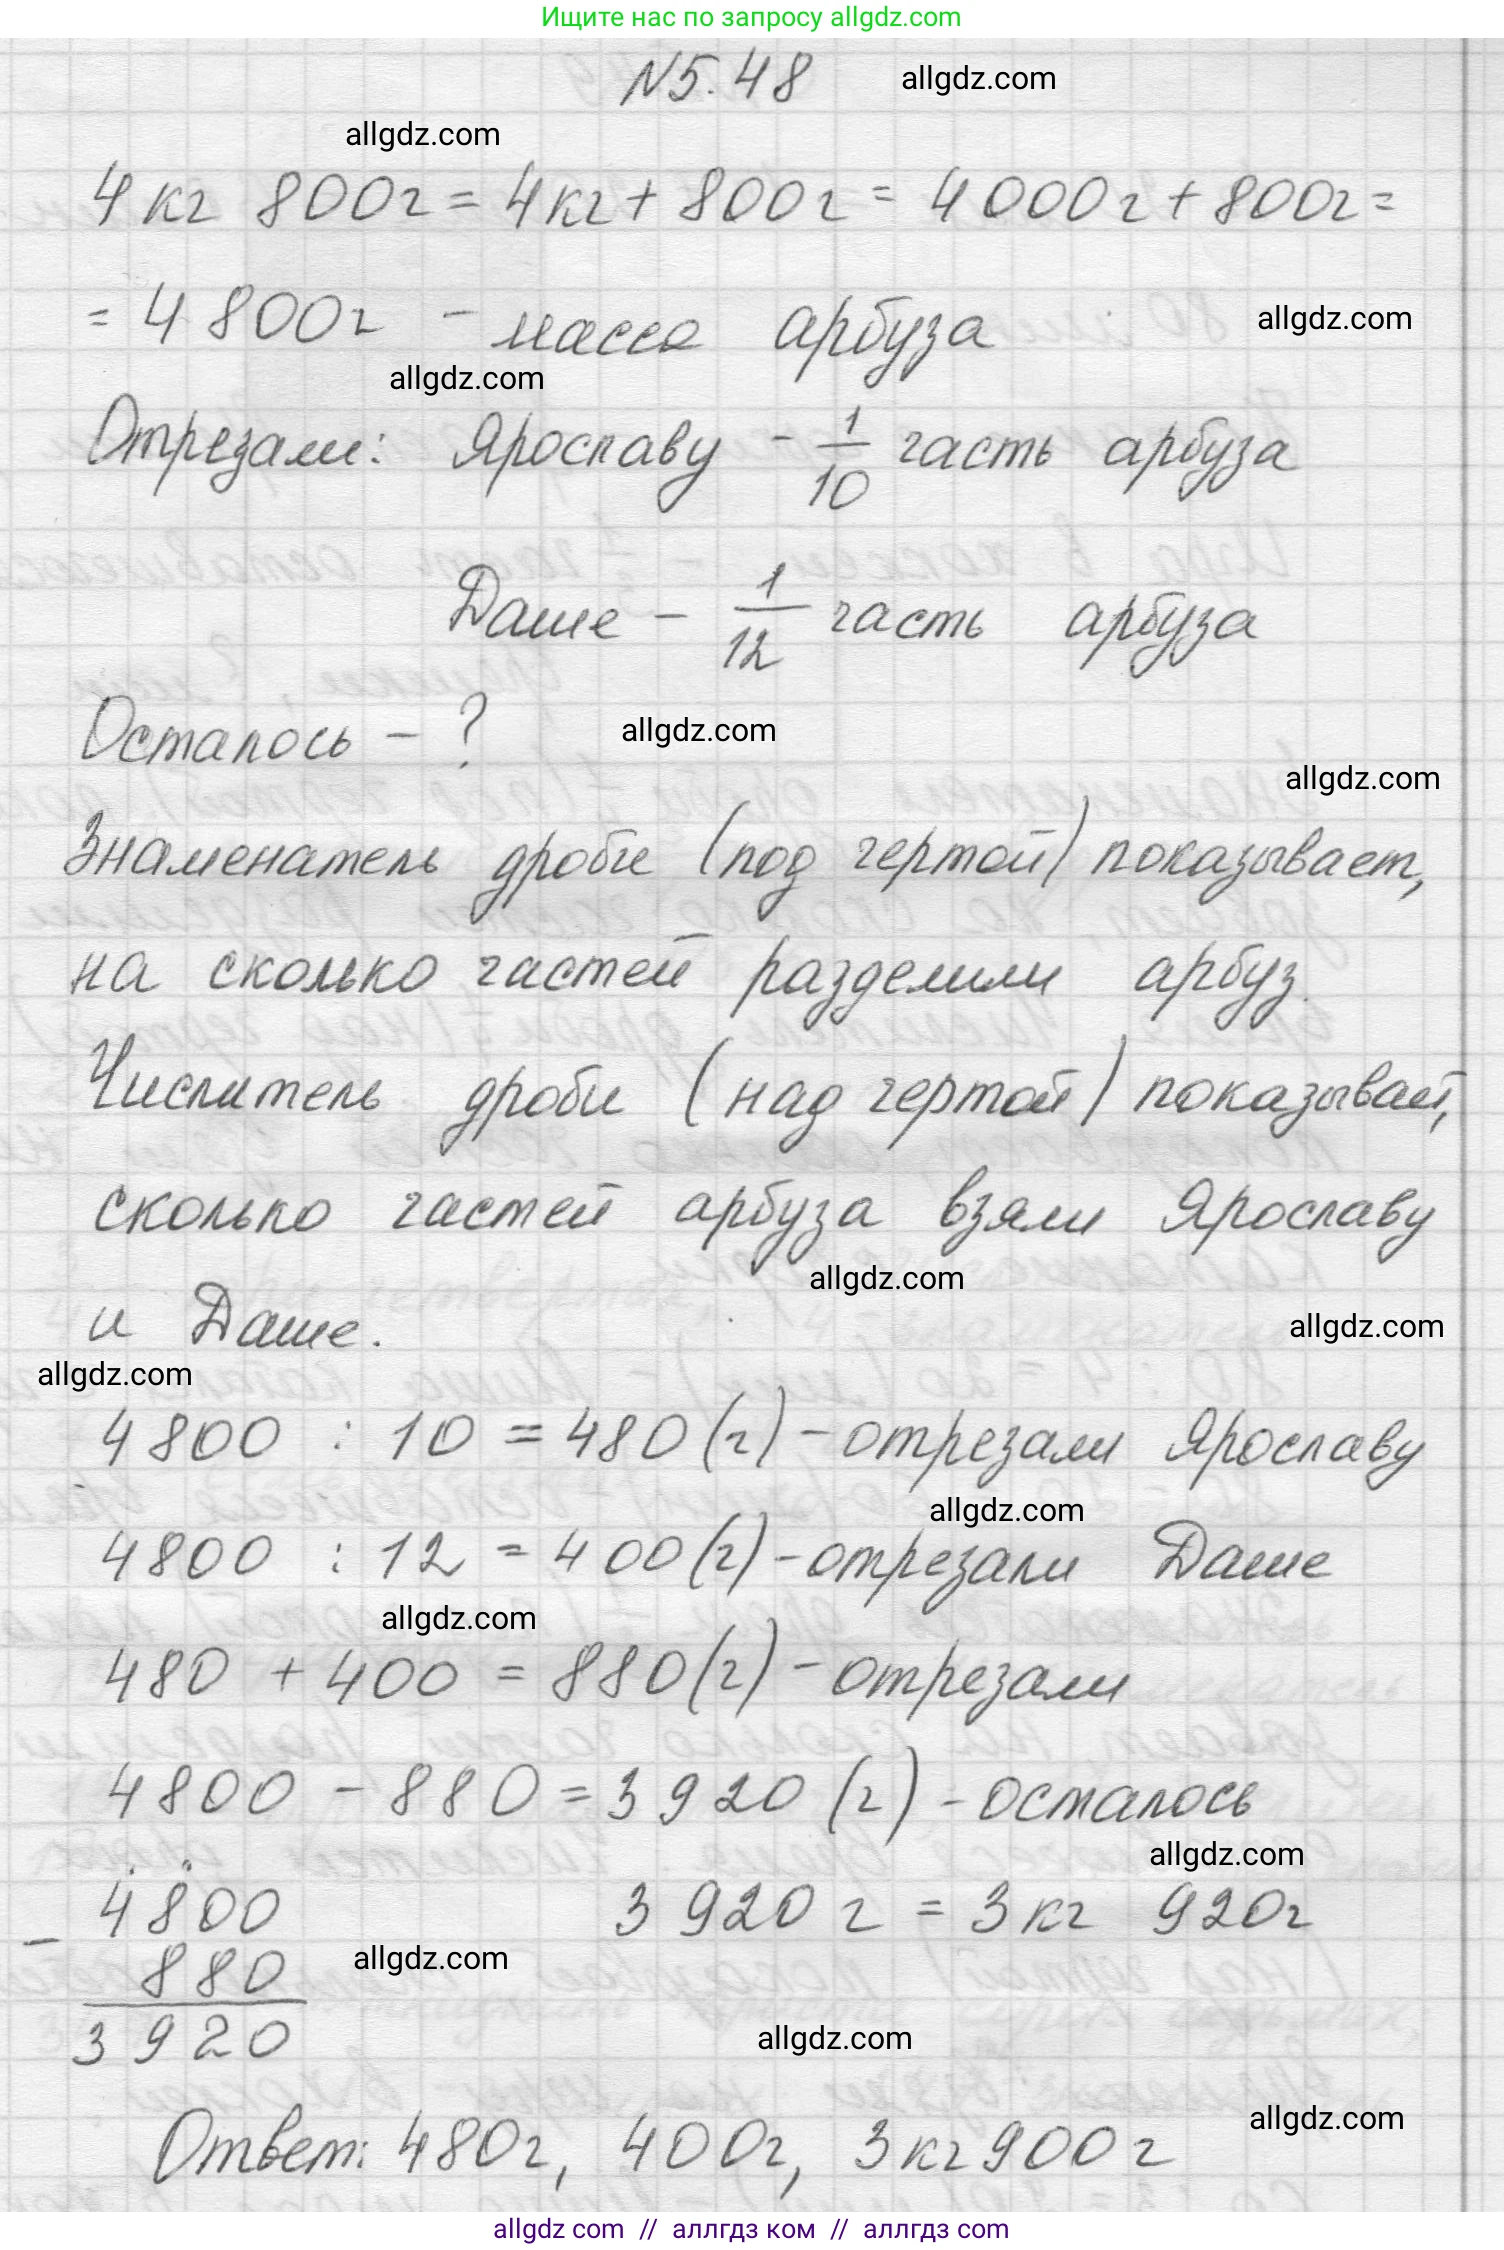 Ищите нас по запросу allgdz.com
N5.48 allgdz.com
allgdz.com
4кг 800г = 4кг + 800г = 4000г + 800г =
= 4800г - масса арбуза allgdz.com
allgdz.com
Отрезали: Ярославу - 1/10 часть арбуза
Даше - 1/12 часть арбуза
Осталось - ? allgdz.com
allgdz.com
Знаменатель дроби (под чертой) показывает,
на сколько частей разделили арбуз.
Числитель дроби (над чертой) показывает,
сколько частей арбуза взяли Ярославу
allgdz.com
и Даше. allgdz.com
allgdz.com
4800 : 10 = 480 (г) - отрезали Ярославу
allgdz.com
4800 : 12 = 400 (г) - отрезали Даше
allgdz.com
480 + 400 = 880 (г) - отрезали
4800 - 880 = 3920 (г) - осталось
allgdz.com
4800 3920 г = 3кг 920г
- 880 allgdz.com
3920
allgdz.com
allgdz.com
Ответ: 480г, 400г, 3кг900г
allgdz.com // аллгдз ком // аллгдз com